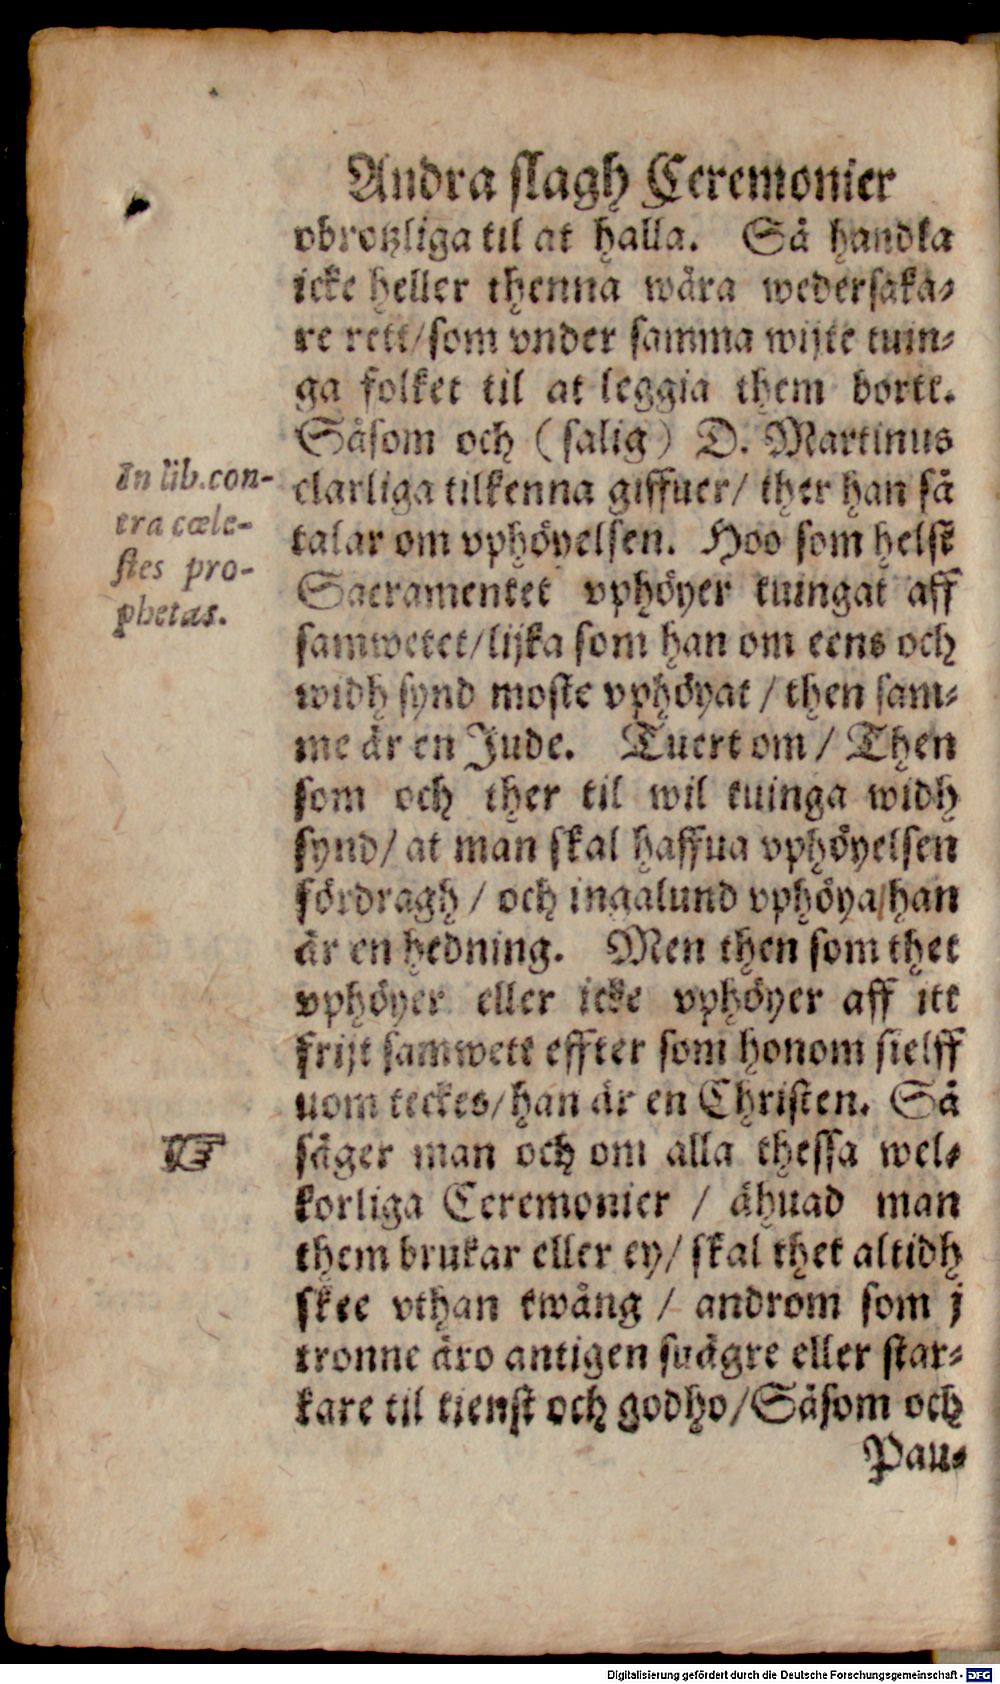 Andra slagh Ceremonier
obrotzliga til at halla. Så handla
icke heller thenna wåra wedersaka-
re rett/ som vnder samma wijte tuin-
ga folket til at leggia them borte.
Såsom och (salig) D. Martinus
clarliga tilkenna giffuer/ ther han så
talar om vphöyelsen. Hoo som helst
Sacramentet vphöyer tuingat aff
samwetet/ lijka som han om eens och
widh synd moste vphöyat / then sam-
me är en Jude. Tuert om / Then
som och ther til wil tuinga widh
synd/ at man skal haffua vphöyelsen
fördragh / och ingalund vphöya/ han
är en hedning. Men then som thet
vphöyer eller icke vphöyer aff itt
frijt samwett effter som honom sielff
uom teckes/ han är en Christen. Så
säger man och om alla thessa wel-
korliga Ceremonier / ähuad man
them brukar eller ey/ skal thet altidh
skee vthan twång / androm som j
tronne äro antigen suagre eller star-
kare til tienst och godho/ Såsom och
Pau-
In lib. con-
tra cœle-
stes pro-
phetas.
☞
Digitalisierung gefördert durch die Deutsche Forschungsgemeinschaft - DFG